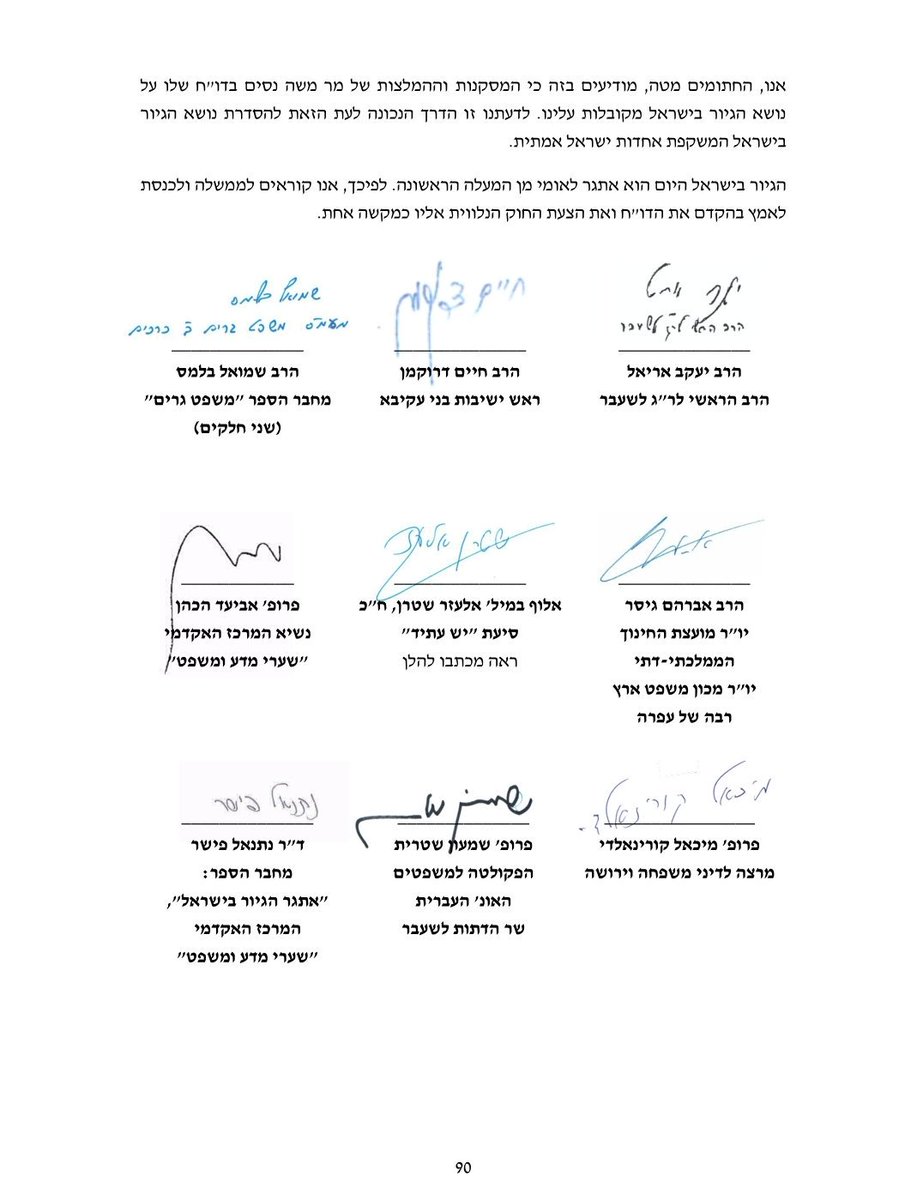 אנו, החתומים מטה, מודיעים בזה כי המסקנות וההמלצות של מר משה נסים בדו"ח שלו על
נושא הגיור בישראל מקובלות עלינו. לדעתנו זו הדרך הנכונה לעת הזאת להסדרת נושא הגיור
בישראל המשקפת אחדות ישראל אמתית.
הגיור בישראל היום הוא אתגר לאומי מן המעלה הראשונה. לפיכך, אנו קוראים לממשלה ולכנסת
לאמץ בהקדם את הדו"ח ואת הצעת החוק הנלווית אליו כמקשה אחת.
הרב יעקב אריאל
הרב הראשי לר"ג לשעבר
חיים דרוקמן
הרב חיים דרוקמן
ראש ישיבות בני עקיבא
שמואל בלמס
הרב שמואל בלמס
מחבר הספר "משפט גרים"
(שני חלקים)
הרב אברהם גיסר
יו"ר מועצת החינוך
הממלכתי-דתי
יו"ר מכון משפט ארץ
רבה של עפרה
שטרן אלעזר
אלוף במיל' אלעזר שטרן, ח"כ
סיעת "יש עתיד"
ראה מכתבו להלן
פרופ' אביעד הכהן
נשיא המרכז האקדמי
"שערי מדע ומשפט"
מיכאל קורינאלדי
פרופ' מיכאל קורינאלדי
מרצה לדיני משפחה וירושה
פרופ' שמעון שטרית
הפקולטה למשפטים
האונ' העברית
שר הדתות לשעבר
נתנאל פישר
ד"ר נתנאל פישר
מחבר הספר:
"אתגר הגיור בישראל",
המרכז האקדמי
"שערי מדע ומשפט"
90